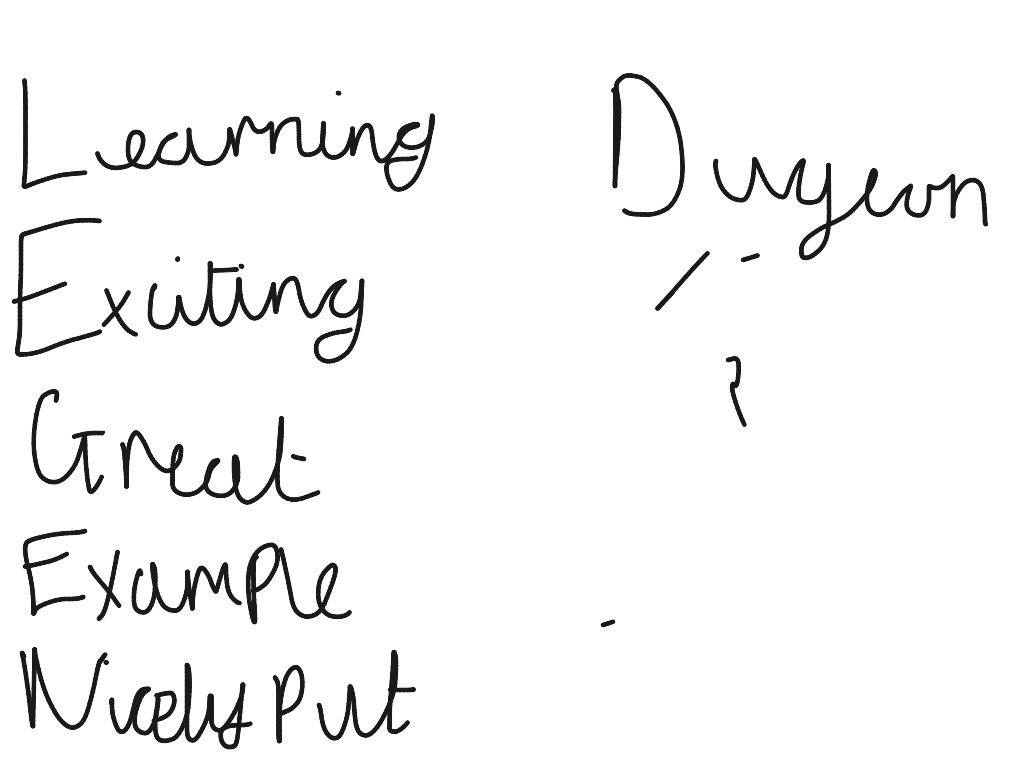 Learning
Exiting
Great
Example
Nicely Put